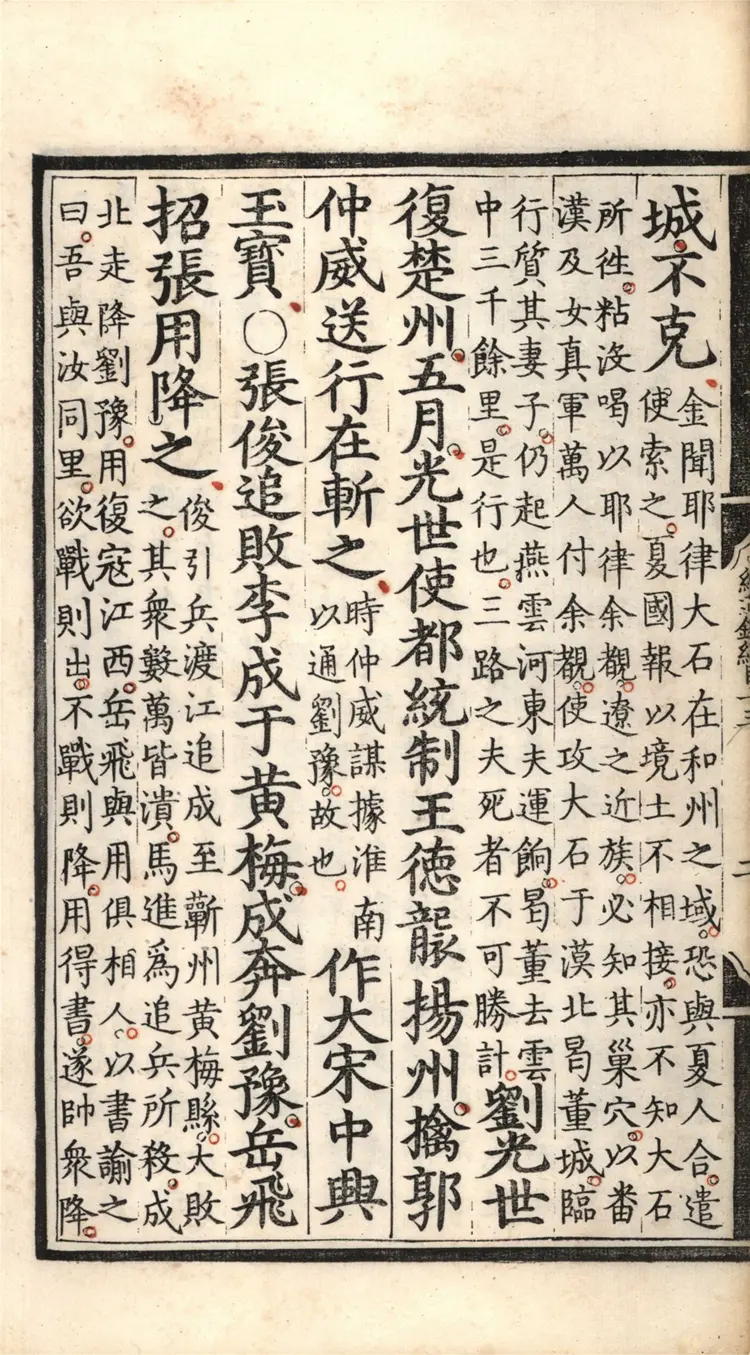 城不克
金聞耶律大石在和州之域恐與夏人合遣
使索之夏國報以境土不相接亦不知大石
所徃粘没喝以耶律余覩遼之近族必知其巢穴以畨
漢及女真軍萬人付余覩使攻大石于漠北曷董城臨
行質其妻子仍起燕雲河東夫運餉曷董去雲
中三千餘里是行也三路之夫死者不可勝計
劉光世
復楚州五月光世使都統制王德襲揚州擒郭
仲威送行在斬之
時仲威謀據淮南
以通劉豫故也
作大宋中興
玉寳○張俊追敗李成于黄梅成奔劉豫岳飛
招張用降之
俊引兵渡江追成至蘄州黄梅縣大敗
之其衆數萬皆潰馬進爲追兵所殺成
北走降劉豫用復寇江西岳飛與用俱相人以書諭之
曰吾與汝同里欲戰則出不戰則降用得書遂帥衆降